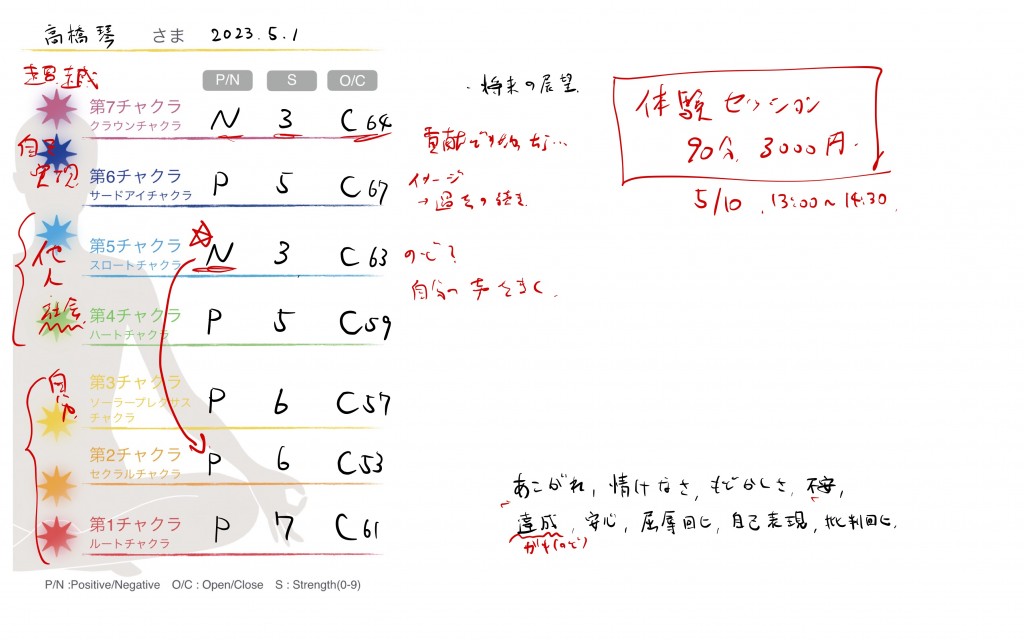 高橋 琴 さま 2023.5.1
超越
P/N S O/C
第7チャクラ
クラウンチャクラ
N 3 C64
自己
実現
第6チャクラ
サードアイチャクラ
P 5 C67
他人
社会
第5チャクラ
スロートチャクラ
N 3 C63
第4チャクラ
ハートチャクラ
P 5 C59
自分
第3チャクラ
ソーラープレクサス
チャクラ
P 6 C57
第2チャクラ
セクラルチャクラ
P 6 C53
第1チャクラ
ルートチャクラ
P 7 C61
P/N :Positive/Negative O/C : Open/Close S : Strength(0-9)
・将来の展望
貢献
イメージ
→過去の続き
のど？
自分の声をきく
体験セッション
90分 3000円
5/10 13:00～14:30
あこがれ, 情けなさ, もどかしさ, 不安,
達成, 安心, 屈辱回ヒ, 自己表現, 批判回ヒ